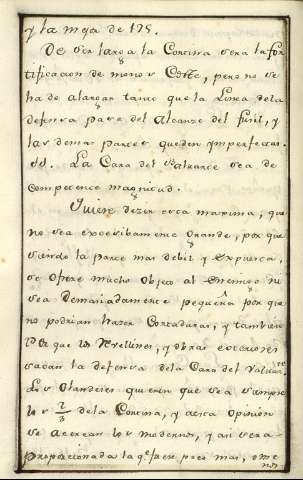 y la mya de 175.
De ser larga la Cortina sera la for
tificacion de menor Coste, pero no se
ha de alargar tanto que la Linea dela
defensa pase del Alcanze del fusil, y
las demas partes queden imperfectas.
La Cara del Valuarte sea de
competente magnitud.
Quiere dezir esta maxima, que
no sea excesibamente Grande, por que
siendo la parte mas debil y expuesta,
se ofrere mucho objeto al enemigo ni
sea Demasiadamente pequeña por que
no podrian hazer Cortaduras, y tambien
que los Revellines, y obras exteriores
sacan la defensa dela Cara del Valuarte.
Los Olandeses quieren que sea siempre
los 2/3 dela Cortina, y a esta opinion
se acercan los modernos, y asi sera
proporcionada la q.e fuere poco mas, ome
nos